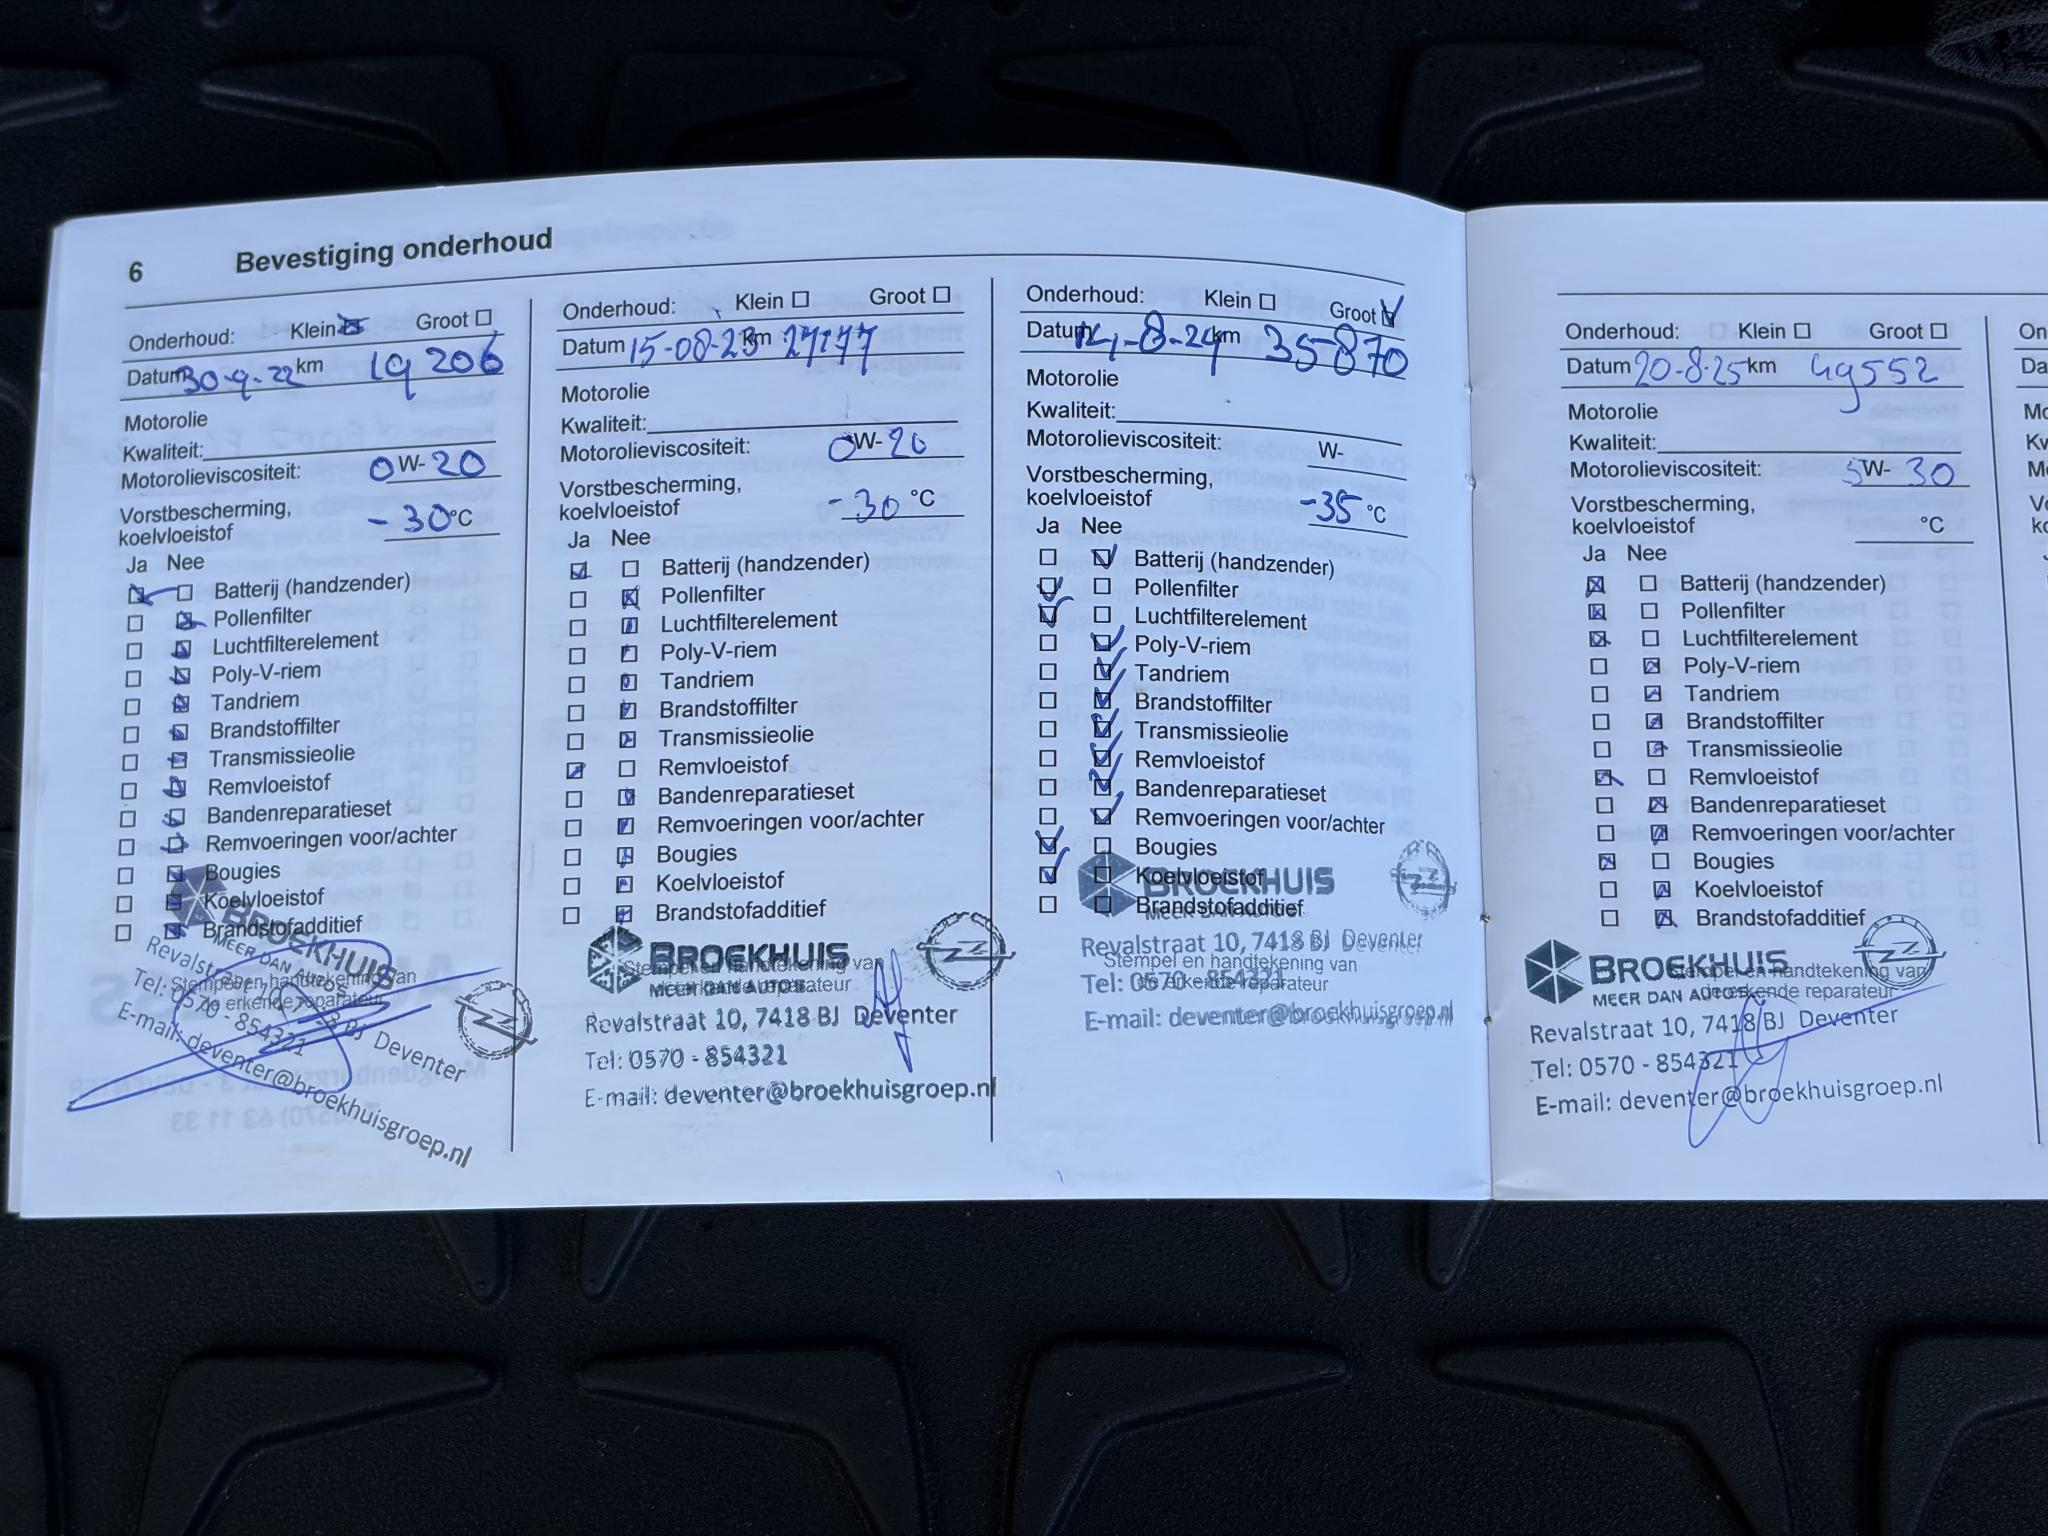 6 Bevestiging onderhoud
Onderhoud: Klein Groot
Datum 30-9-22 km 19206
Motorolie
Kwaliteit:
Motorolieviscositeit: 0W-20
Vorstbescherming,
koelvloeistof -30°C
Ja Nee
Batterij (handzender)
Pollenfilter
Luchtfilterelement
Poly-V-riem
Tandriem
Brandstoffilter
Transmissieolie
Remvloeistof
Bandenreparatieset
Remvoeringen voor/achter
Bougies
Koelvloeistof
Brandstofadditief
BROEKHUIS
MEER DAN AUTOS
Stempel en handtekening van
de erkende reparateur
Revalstraat 10, 7418 BJ Deventer
Tel: 0570 - 854321
E-mail: deventer@broekhuisgroep.nl
Onderhoud: Klein Groot
Datum 15-08-23 km
Motorolie
Kwaliteit:
Motorolieviscositeit: 0W-20
Vorstbescherming,
koelvloeistof -30 °C
Ja Nee
Batterij (handzender)
Pollenfilter
Luchtfilterelement
Poly-V-riem
Tandriem
Brandstoffilter
Transmissieolie
Remvloeistof
Bandenreparatieset
Remvoeringen voor/achter
Bougies
Koelvloeistof
Brandstofadditief
BROEKHUIS
Stempel en handtekening van
MEER DAN AUTOS
de erkende reparateur
Revalstraat 10, 7418 BJ Deventer
Tel: 0570 - 854321
E-mail: deventer@broekhuisgroep.nl
Onderhoud: Klein Groot
Datum 14-8-24 km 35870
Motorolie
Kwaliteit:
Motorolieviscositeit: W-
Vorstbescherming,
koelvloeistof -35 °C
Ja Nee
Batterij (handzender)
Pollenfilter
Luchtfilterelement
Poly-V-riem
Tandriem
Brandstoffilter
Transmissieolie
Remvloeistof
Bandenreparatieset
Remvoeringen voor/achter
Bougies
Koelvloeistof
BROEKHUIS
Brandstofadditief
MEER DAN AUTOS
Revalstraat 10, 7418 BJ Deventer
Stempel en handtekening van
Tel: 0570 - 854321
de erkende reparateur
E-mail: deventer@broekhuisgroep.nl
Onderhoud: Klein Groot
Datum 20-8-25 km 49552
Motorolie
Kwaliteit:
Motorolieviscositeit: 5W-30
Vorstbescherming,
koelvloeistof °C
Ja Nee
Batterij (handzender)
Pollenfilter
Luchtfilterelement
Poly-V-riem
Tandriem
Brandstoffilter
Transmissieolie
Remvloeistof
Bandenreparatieset
Remvoeringen voor/achter
Bougies
Koelvloeistof
Brandstofadditief
BROEKHUIS
Stempel en handtekening van
MEER DAN AUTOS
de erkende reparateur
Revalstraat 10, 7418 BJ Deventer
Tel: 0570 - 854321
E-mail: deventer@broekhuisgroep.nl